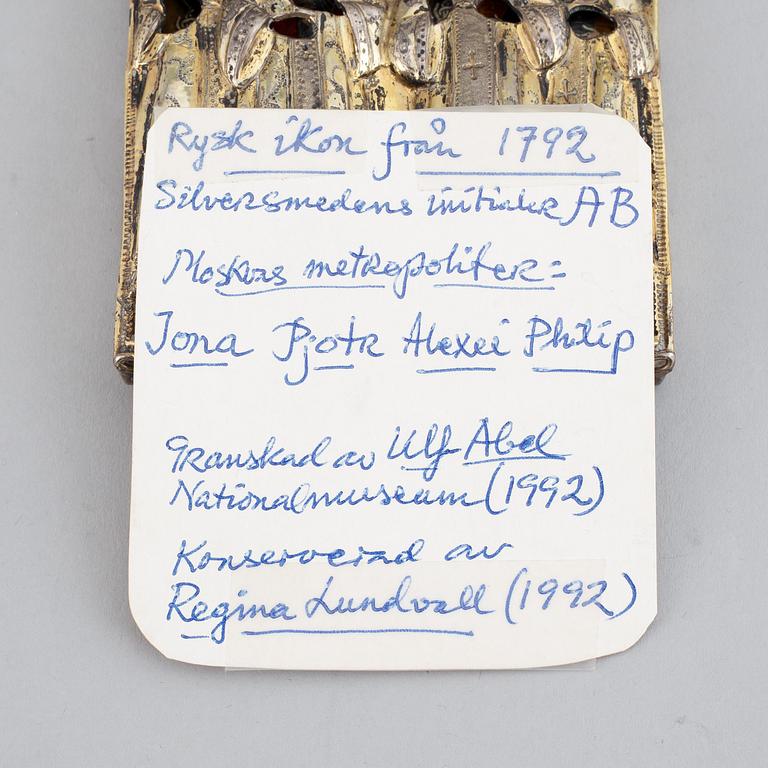 Rysk ikon från 1792
Silversmedens initialer AB
Moskvas metropoliter =
Jona Pjotr Alexei Philip
Granskad av Ulf Abel
Nationalmuseum (1992)
Konserverad av
Regina Lundvall (1992)